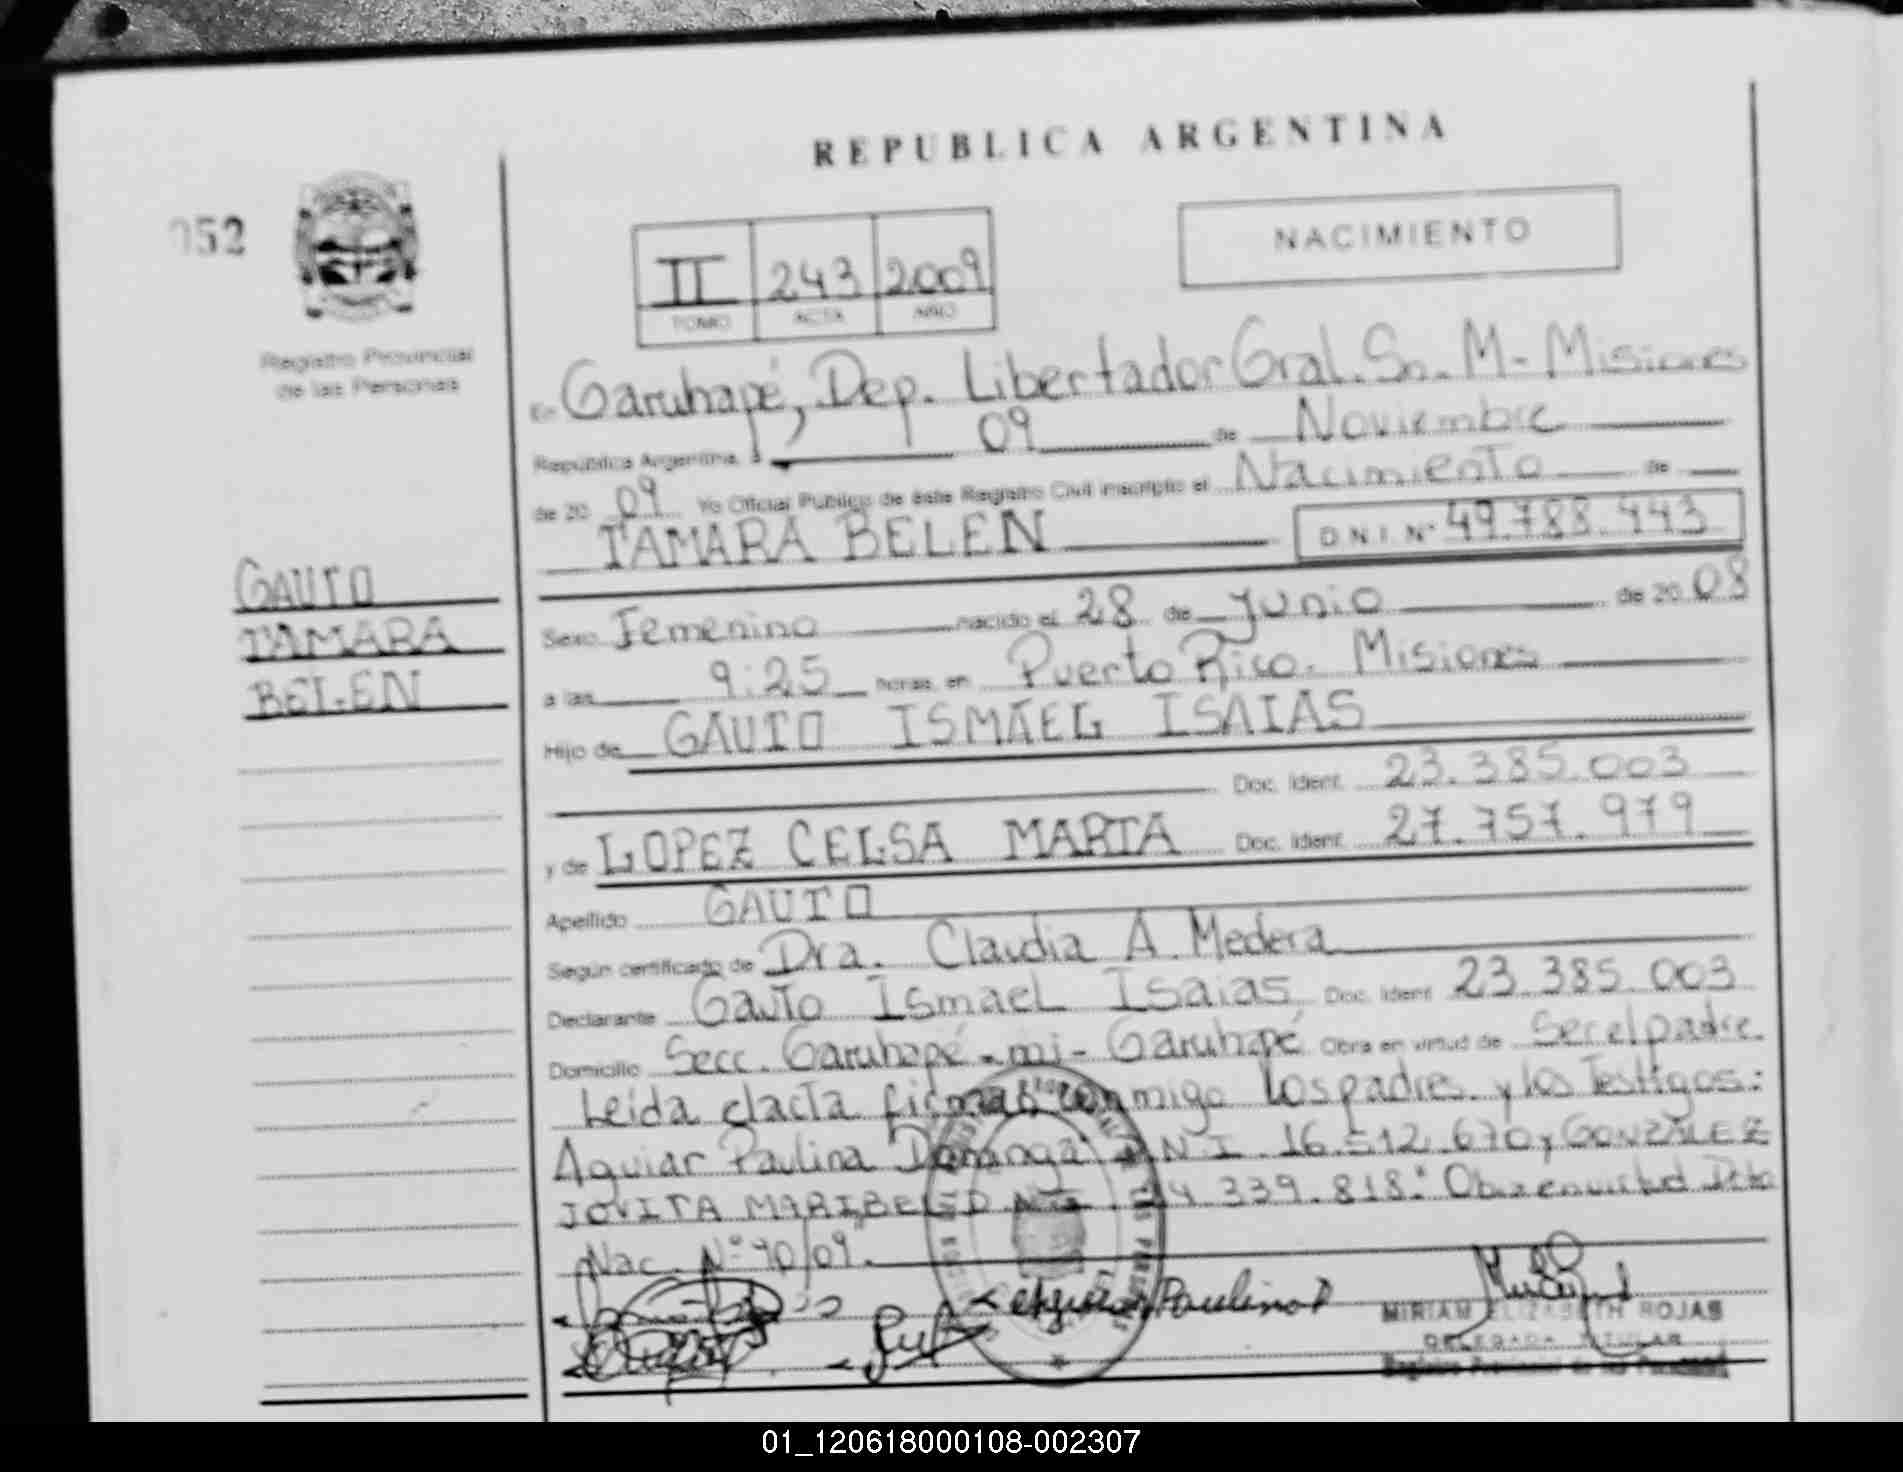 REPUBLICA ARGENTINA
052
NACIMIENTO
II 243 2009
TOMO ACTA AÑO
Registro Provincial
de las Personas
En Garuhapé, Dep. Libertador Gral. Sn. M - Misiones
República Argentina, a 09 de Noviembre
de 2009 Yo Oficial Público de éste Registro Civil inscripto el Nacimiento de
TAMARA BELEN D.N.I. Nº 49.788.443
GAUTO
TAMARA
BELEN
Sexo Femenino nacido el 28 de Junio de 2008
a las 9:25 horas en Puerto Rico. Misiones
Hijo de GAUTO ISMAEL ISAIAS
Doc. Ident. 23.385.003
y de LOPEZ CELSA MARTA Doc. Ident. 27.757.979
Apellido GAUTO
Según certificado de Dra. Claudia A. Medera
Declarante Gauto Ismael Isaias Doc. Ident. 23.385.003
Domicilio Secc. Garuhapé-mi- Garuhapé Obra en virtud de Ser el padre.
Leida el acta firman conmigo los padres y los Testigos:
Aguiar Paulina D.N.I. 16.512.670 y GONZALEZ
JOVITA MARIBEL D.N.I. 339.818. Obra en virtud
Nac. Nº 90/09.
Paulina
MIRIAM ELIZABETH ROJAS
DELEGADA TITULAR
Registro Provincial de las Personas
01_120618000108-002307